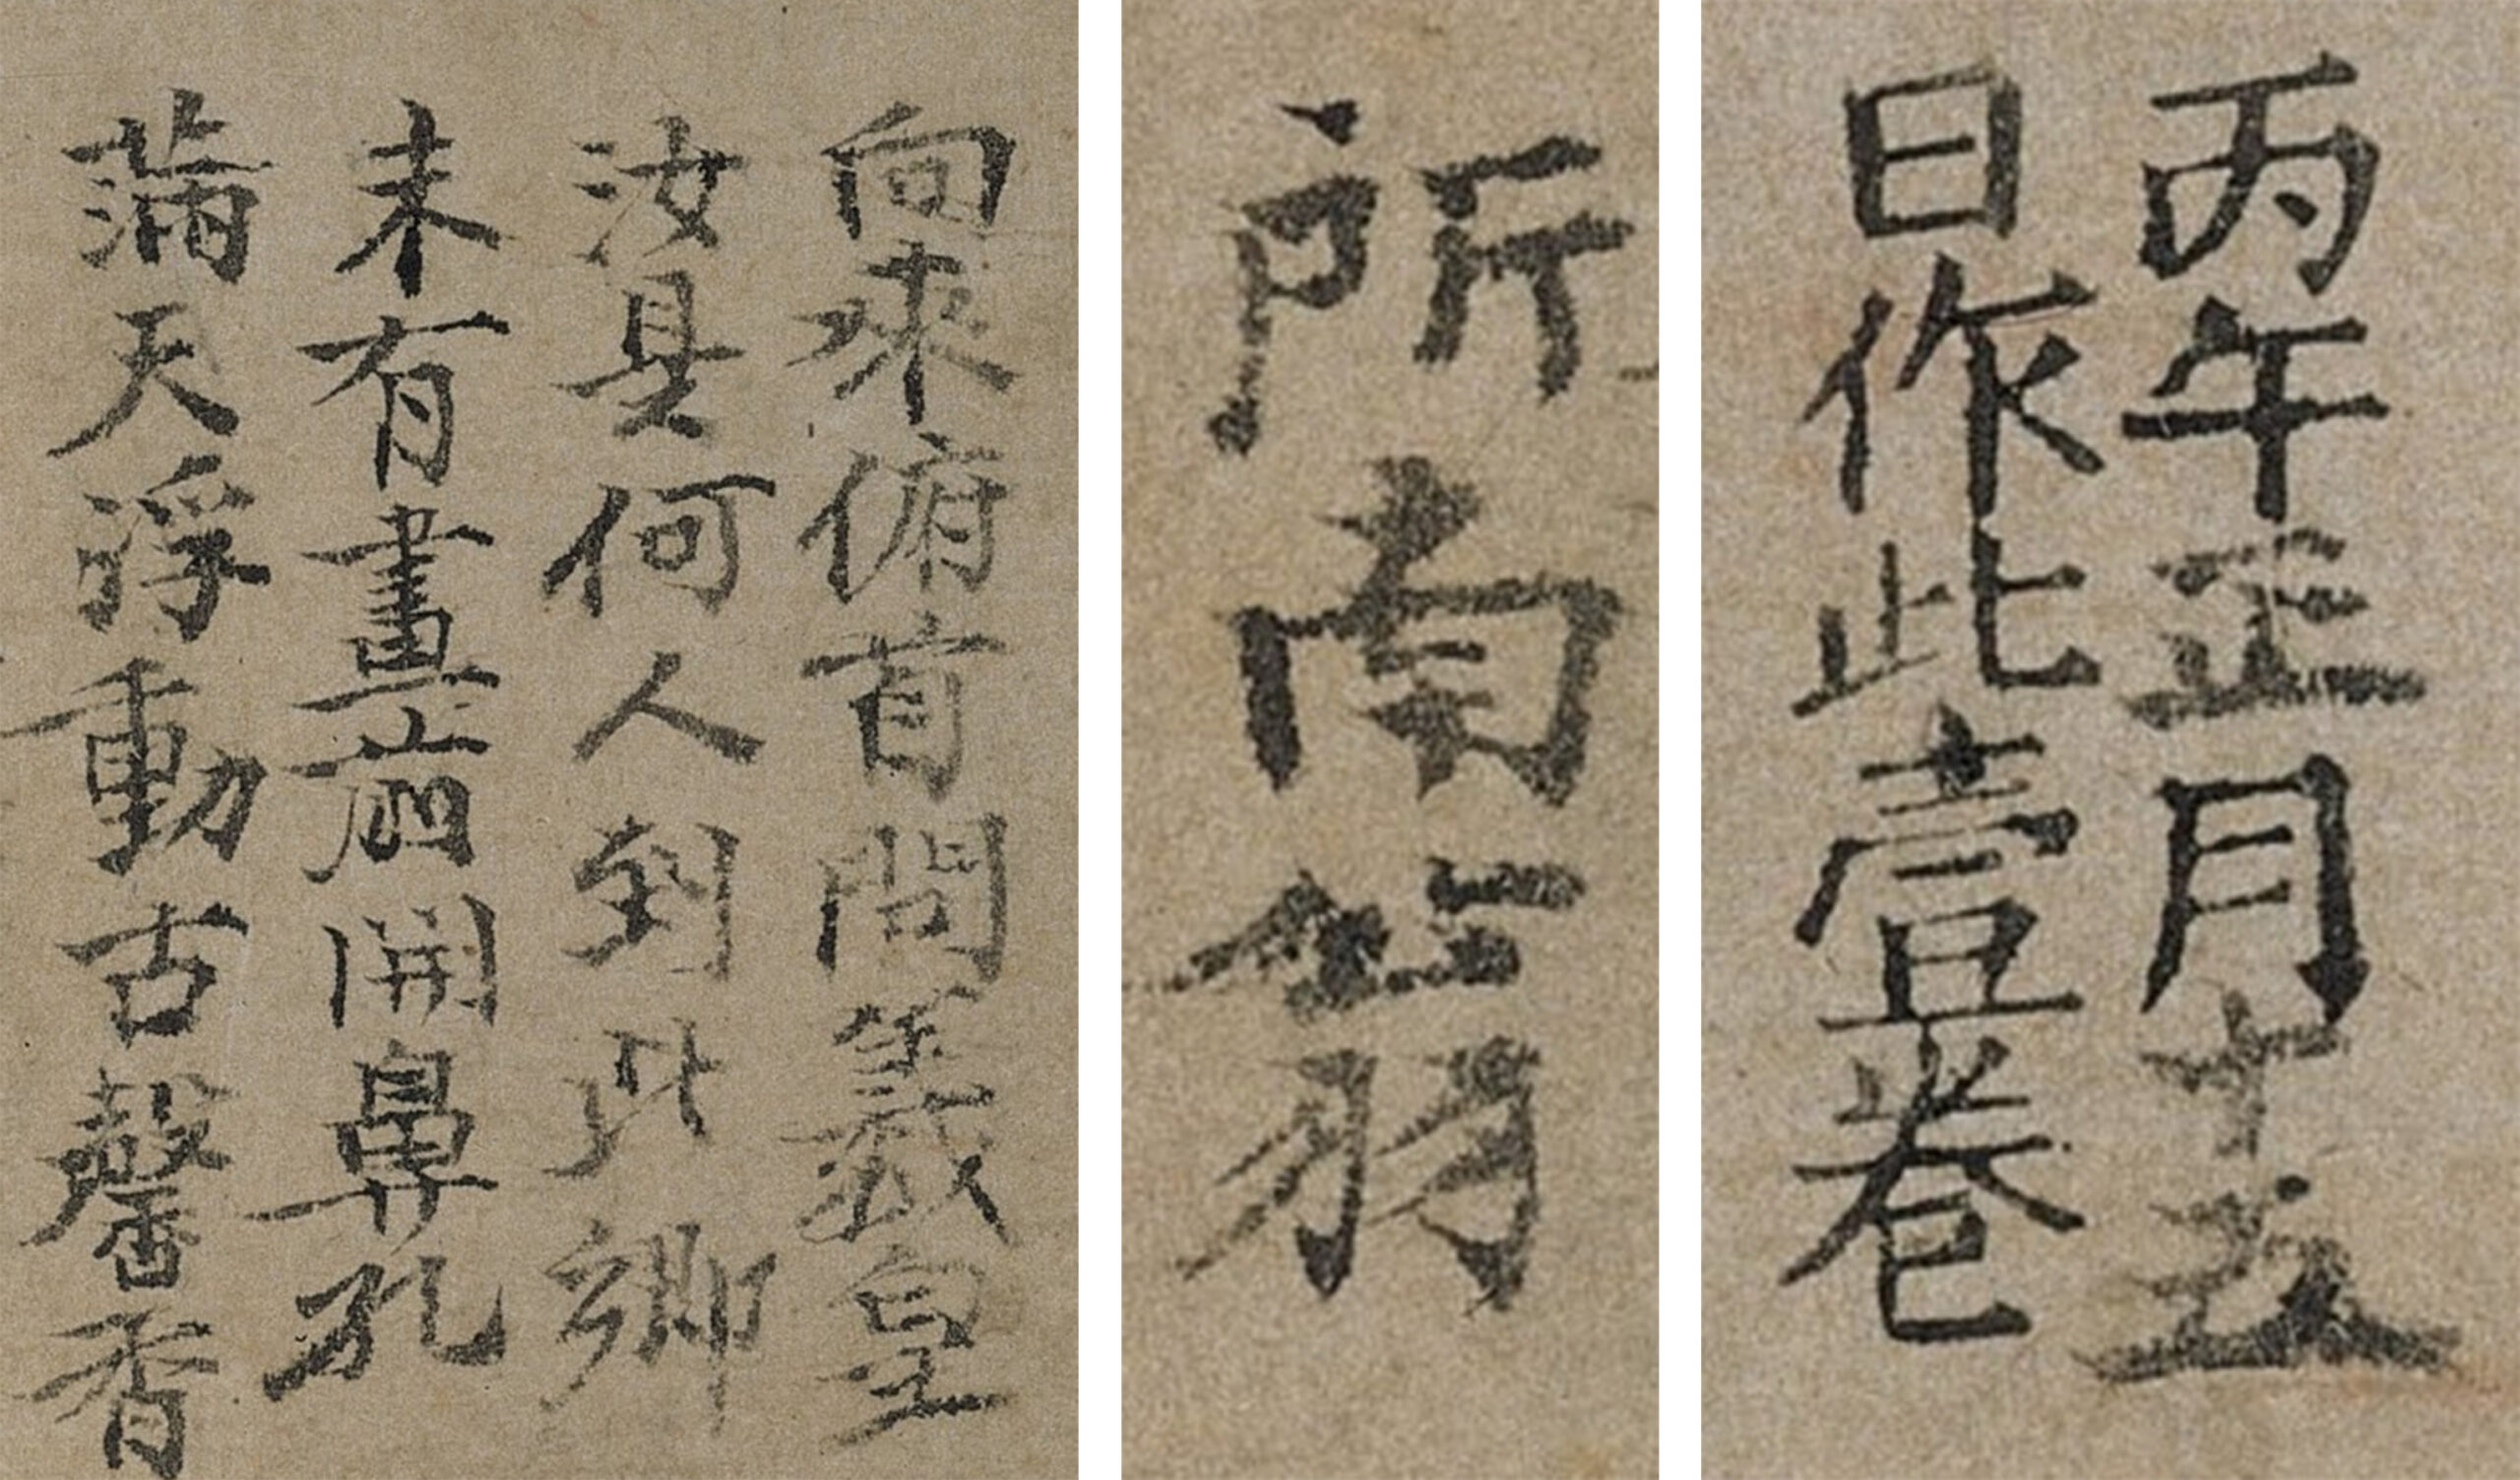 向來俯首問羲皇
汝是何人到此鄉
未有畫前開鼻孔
滿天浮動古馨香
所南翁
丙午正月十五
日作此壹卷